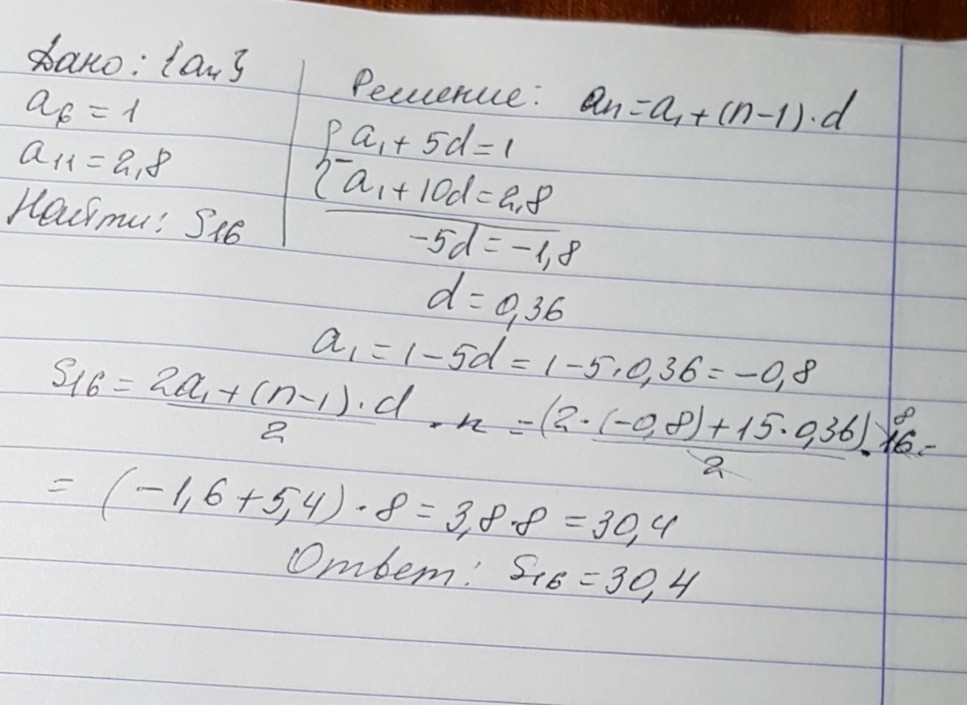 Дано: {aₙ}
a₆ = 1
a₁₁ = 2,8
Найти: S₁₆
Решение: aₙ = a₁ + (n-1)·d
{ a₁ + 5d = 1
- a₁ + 10d = 2,8
-5d = -1,8
d = 0,36
a₁ = 1 - 5d = 1 - 5·0,36 = -0,8
S₁₆ = (2a₁ + (n-1)·d)/2 · n = (2·(-0,8) + 15·0,36)/2 · 16 8 =
= (-1,6 + 5,4)·8 = 3,8·8 = 30,4
Ответ: S₁₆ = 30,4